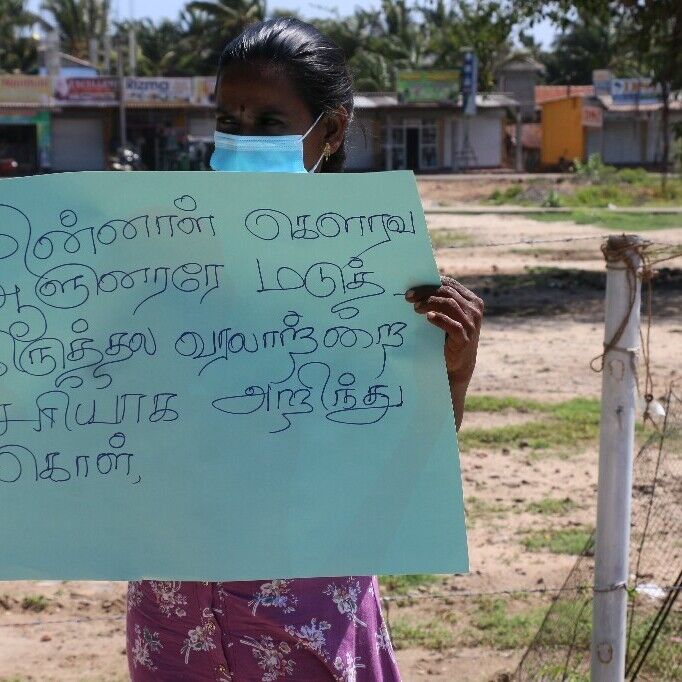 முன்னாள் கௌரவ
ஆளுனரரே மடுத்
திருத்தல வரலாற்றை
சரியாக அறிந்து
கொள்,